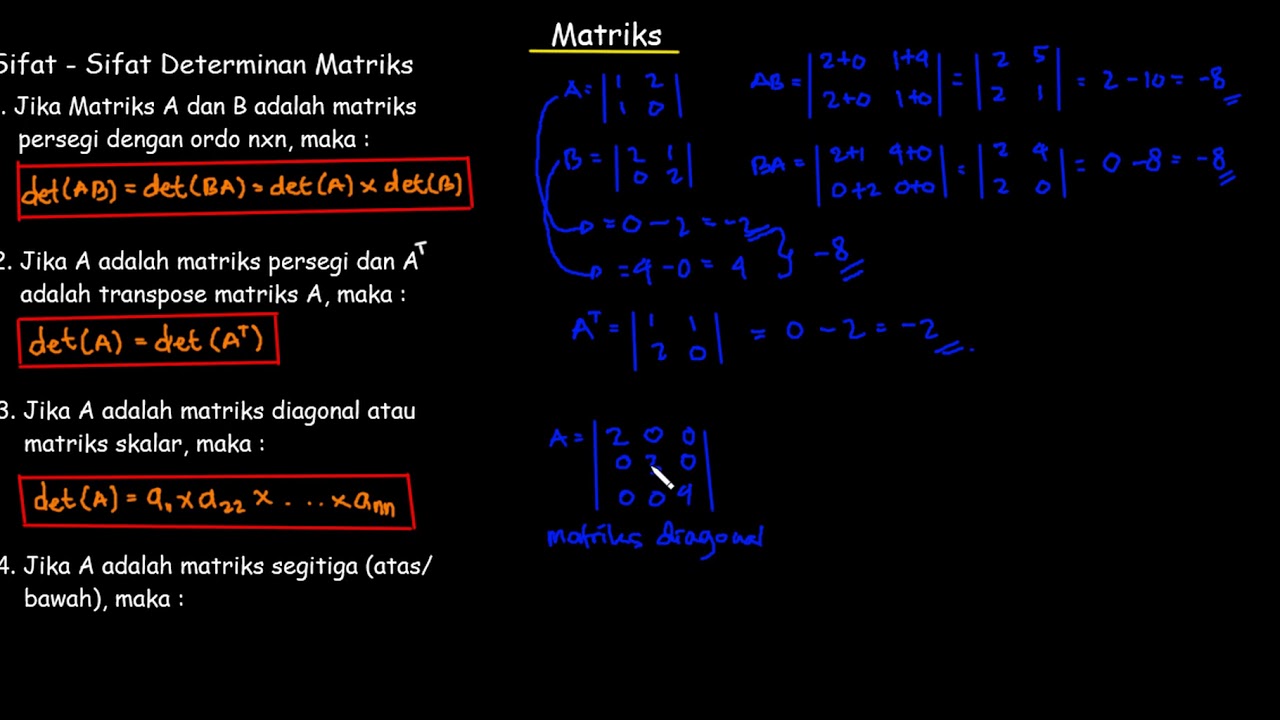 Matriks
Sifat - Sifat Determinan Matriks
. Jika Matriks A dan B adalah matriks
persegi dengan ordo nxn, maka :
det(AB) = det(BA) = det(A) x det(B)
2. Jika A adalah matriks persegi dan Aᵀ
adalah transpose matriks A, maka :
det(A) = det(Aᵀ)
3. Jika A adalah matriks diagonal atau
matriks skalar, maka :
det(A) = a₁₁ x a₂₂ x . ... x aₙₙ
4. Jika A adalah matriks segitiga (atas/
bawah), maka :
A = | 1 2 |
| 1 0 |
B = | 2 1 |
| 0 2 |
= 0 - 2 = -2
= 4 - 0 = 4
-8
AB = | 2+0 1+4 | = | 2 5 | = 2 - 10 = -8
| 2+0 1+0 | | 2 1 |
BA = | 2+1 4+0 | = | 2 4 | = 0 - 8 = -8
| 0+2 0+0 | | 2 0 |
Aᵀ = | 1 1 | = 0 - 2 = -2
| 2 0 |
A = | 2 0 0 |
| 0 0 |
| 0 0 4 |
matriks diagonal